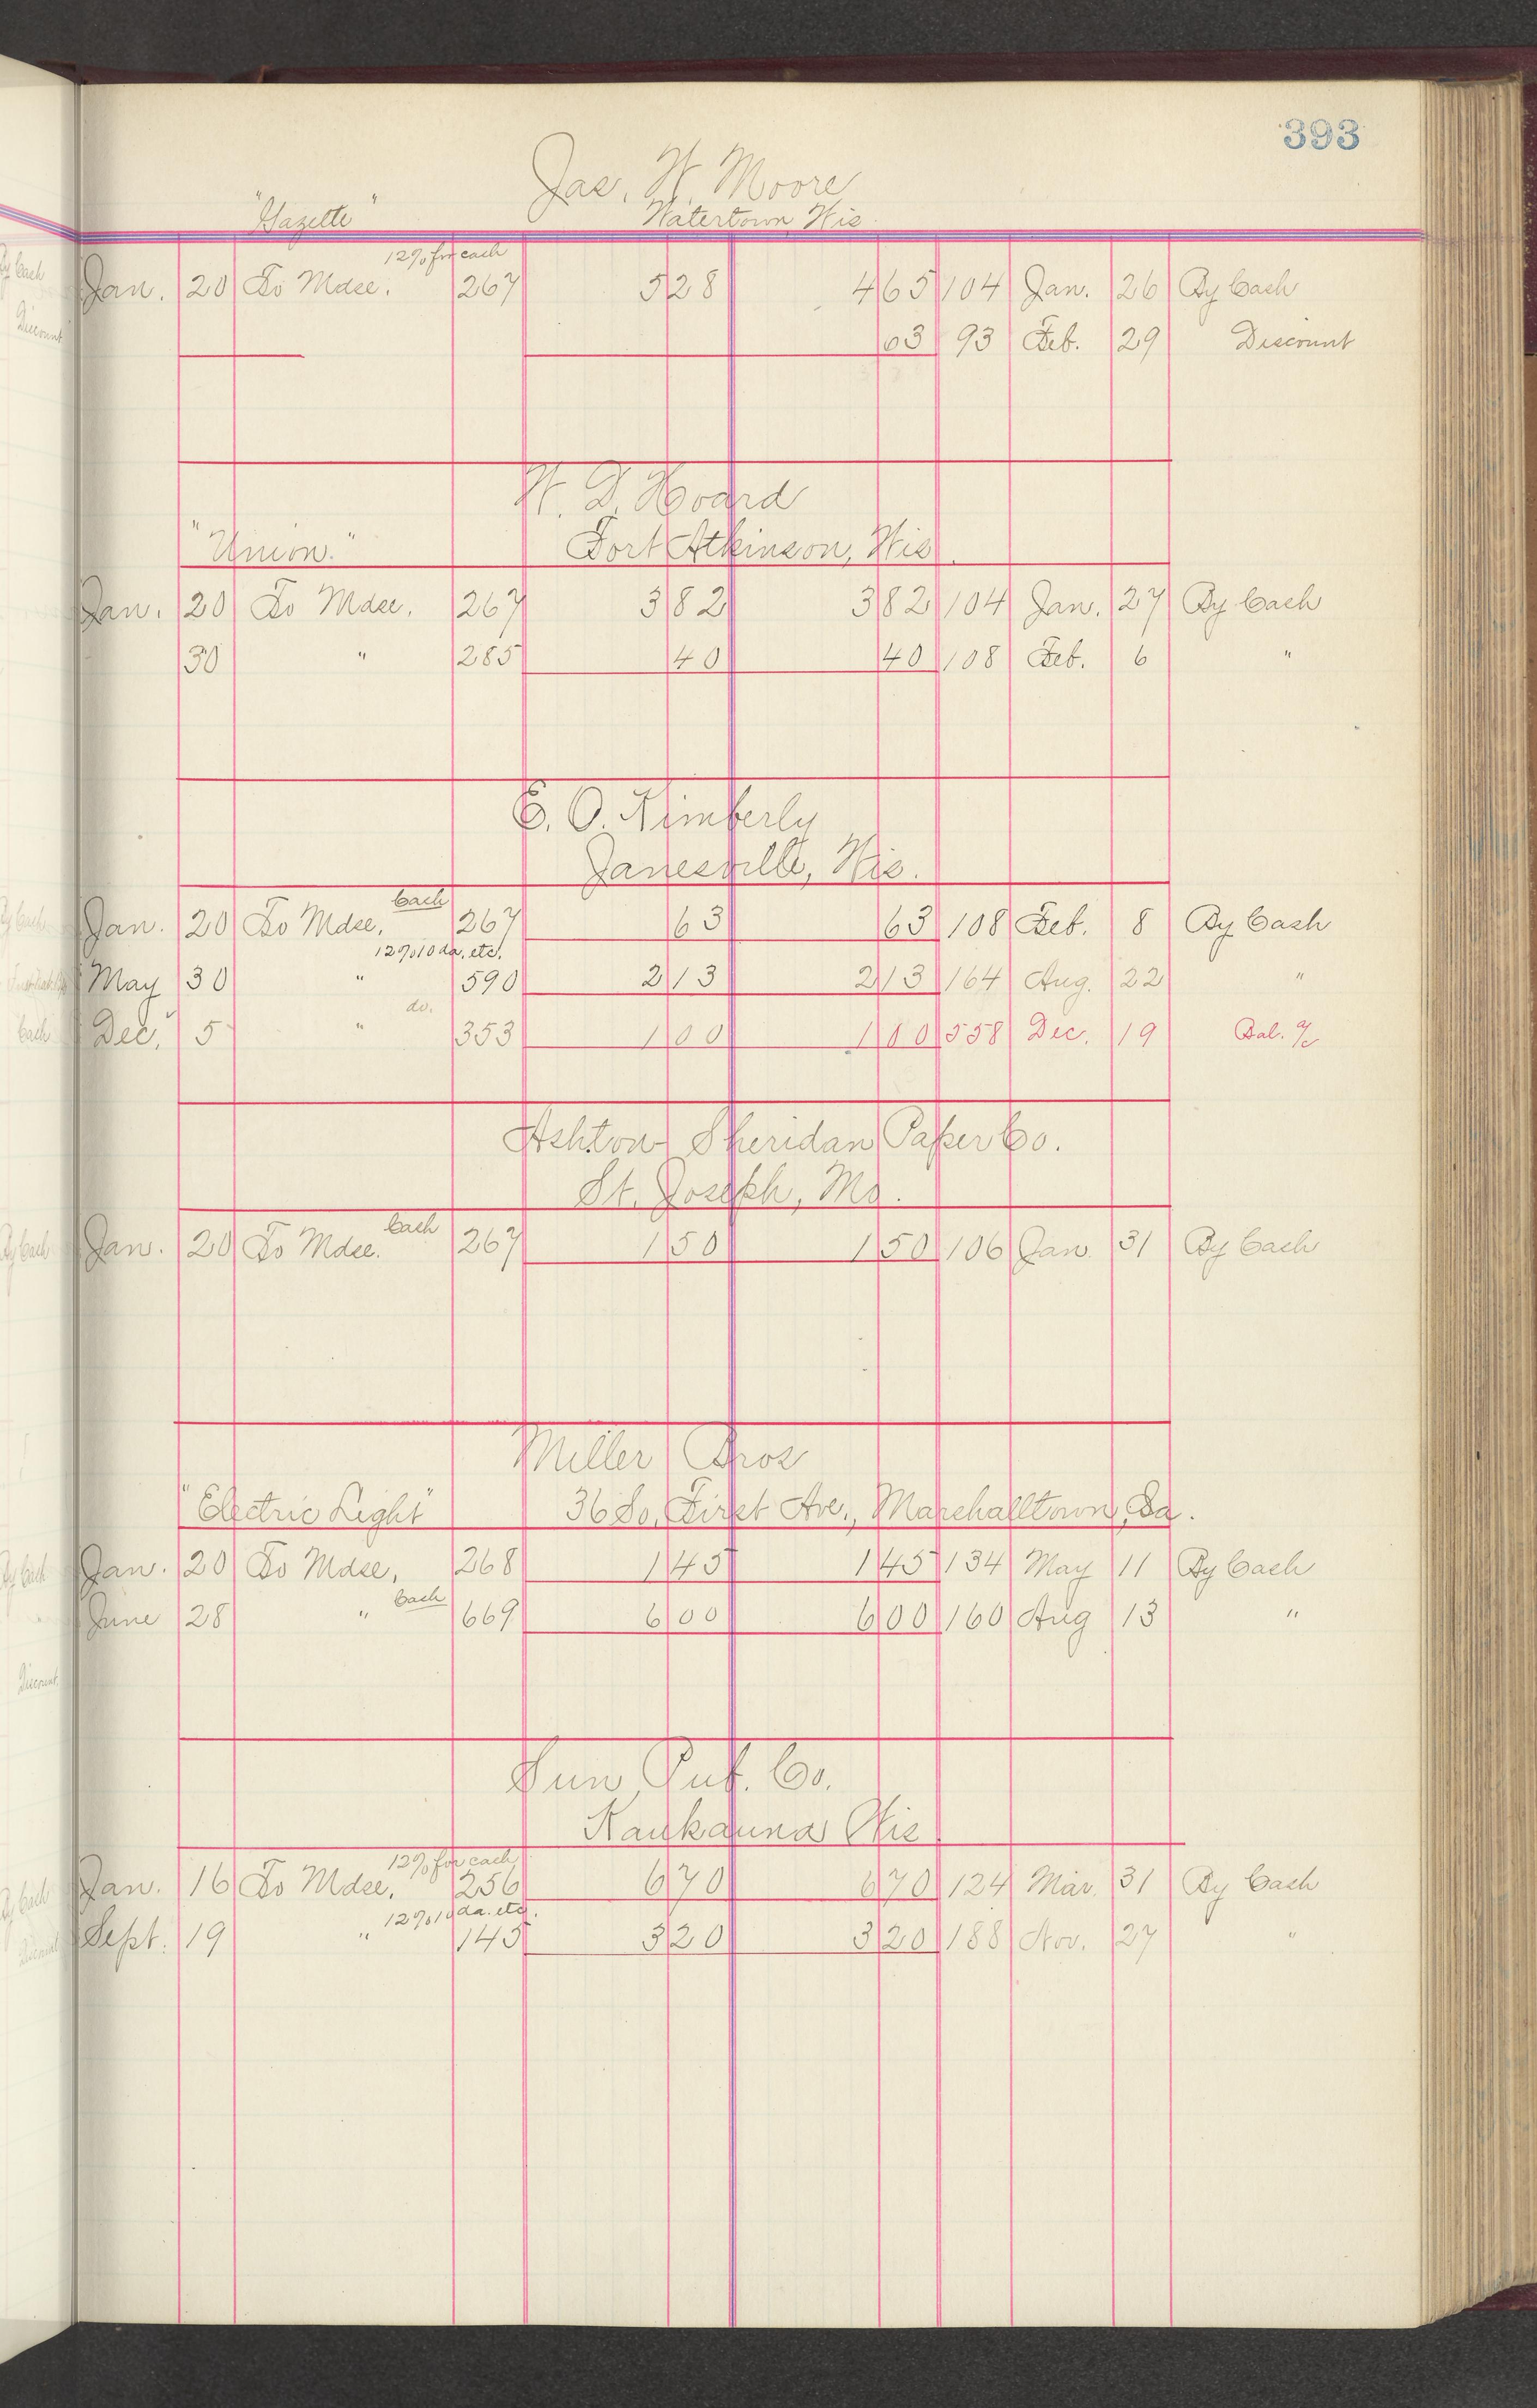 393
Jas. W. Moore
"Gazette" Watertown, Wis.
12% for cash
Jan. 20 To Mdse. 267 5 28 4 65 104 Jan. 26 By Cash
63 93 Feb. 29 Discount
W. D. Hoard
"Union." Fort Atkinson, Wis.
Jan. 20 To Mdse. 267 3 82 3 82 104 Jan. 27 By Cash
30 " 285 40 40 108 Feb. 6 "
E. O. Kimberly
Janesville, Wis.
Cash
Jan. 20 To Mdse. 267 63 63 108 Feb. 8 By Cash
12% 10 da. etc.
May 30 " 590 2 13 2 13 164 Aug. 22 "
do.
Dec. 5 " 353 1 00 1 00 558 Dec. 19 Bal. a/c
Ashton-Sheridan Paper Co.
St. Joseph, Mo.
Cash
Jan. 20 To Mdse. 267 1 50 1 50 106 Jan. 31 By Cash
Miller Bros
"Electric Light" 36 So. First Ave., Marshalltown, Ia.
Jan. 20 To Mdse. 268 1 45 1 45 134 May 11 By Cash
Cash
June 28 " 669 6 00 6 00 160 Aug 13 "
Sun Pub. Co.
Kaukauna Wis
12% for cash
Jan. 16 To Mdse. 256 6 70 6 70 124 Mar. 31 By Cash
12% 10 da. etc.
Sept. 19 " 145 3 20 3 20 188 Nov. 27 "